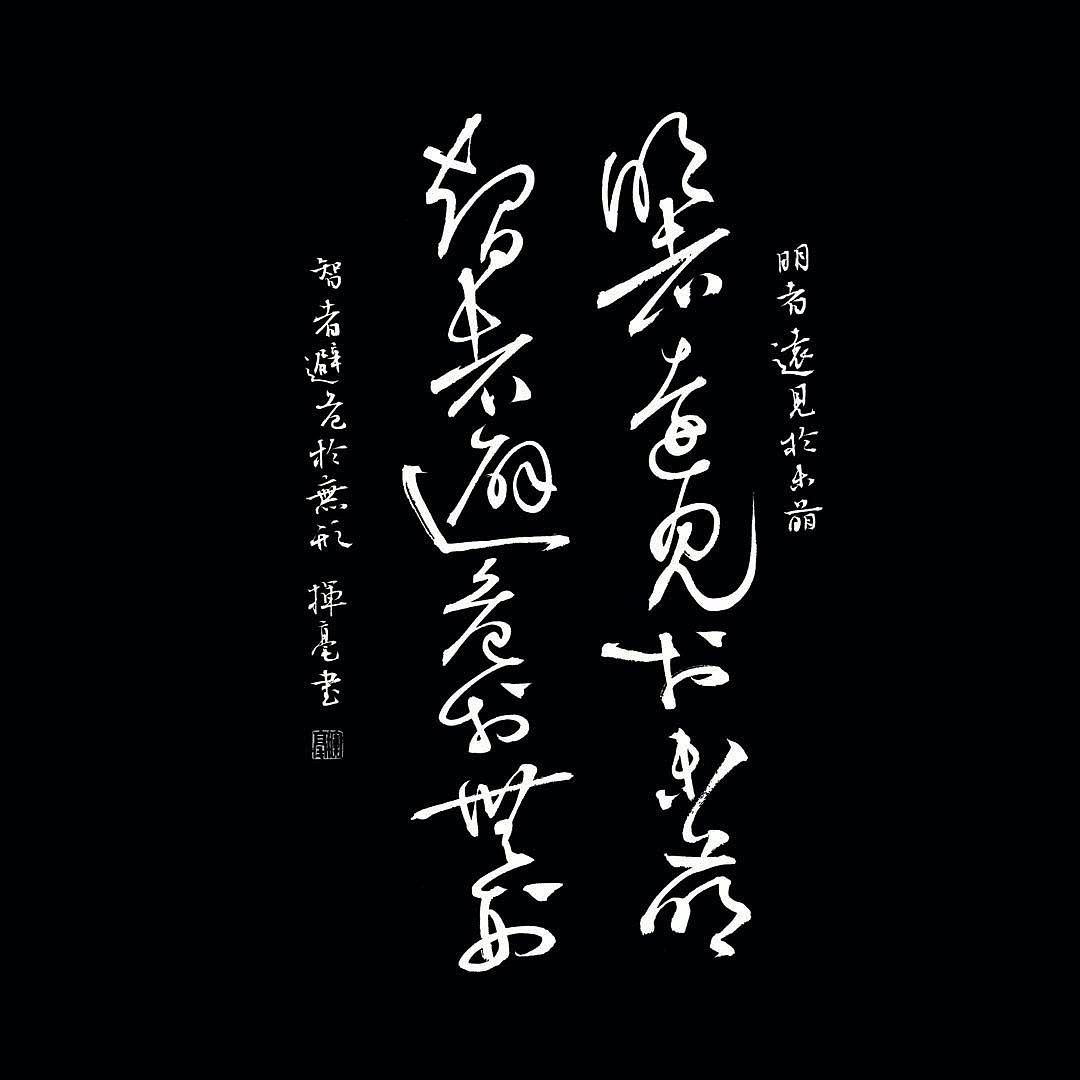 明者遠見於未萌
明者遠見於未萌
智者避危於無形
智者避危於無形 揮毫書